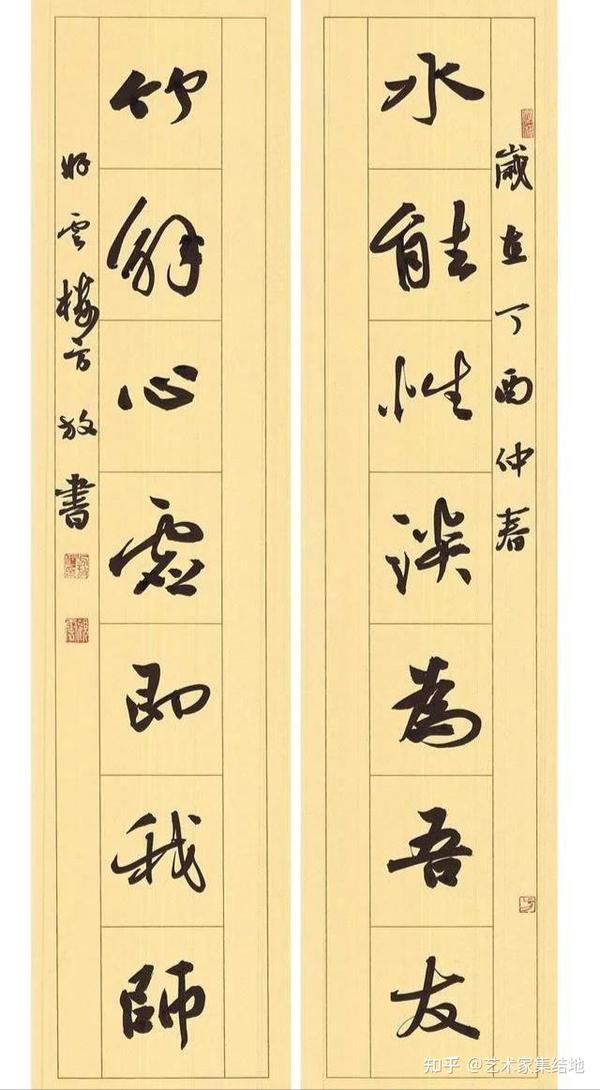 歲在丁酉仲春
水能性淡為吾友
竹解心虛即我師
好雲樓方放書
知乎 @艺术家集结地